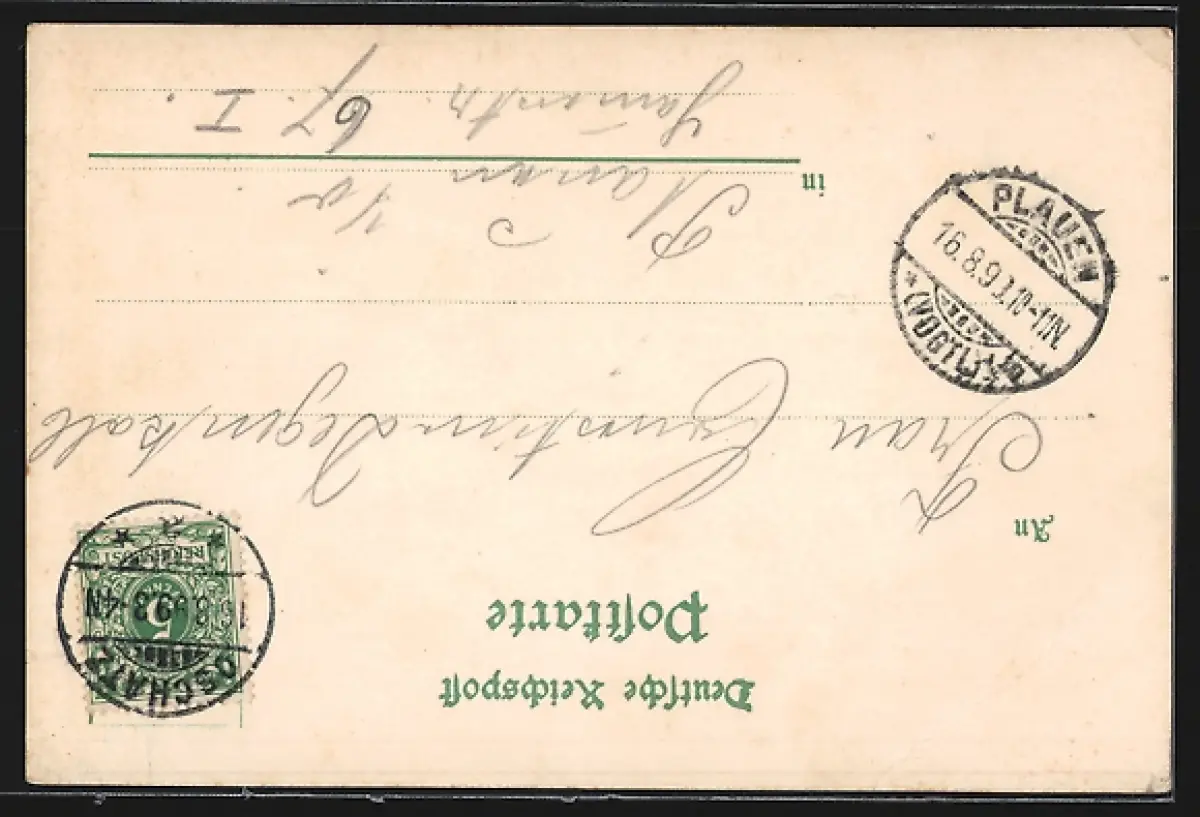 Deutsche Reichspost
Postkarte
An
Frau Ernestine Degenkolb
in
Plauen i/V
67. I.
PLAUEN
16.8.9 10-11N.
* (VOGTL.)
OSCHATZ
16.8.99 3-4N
REICHSPOST
5